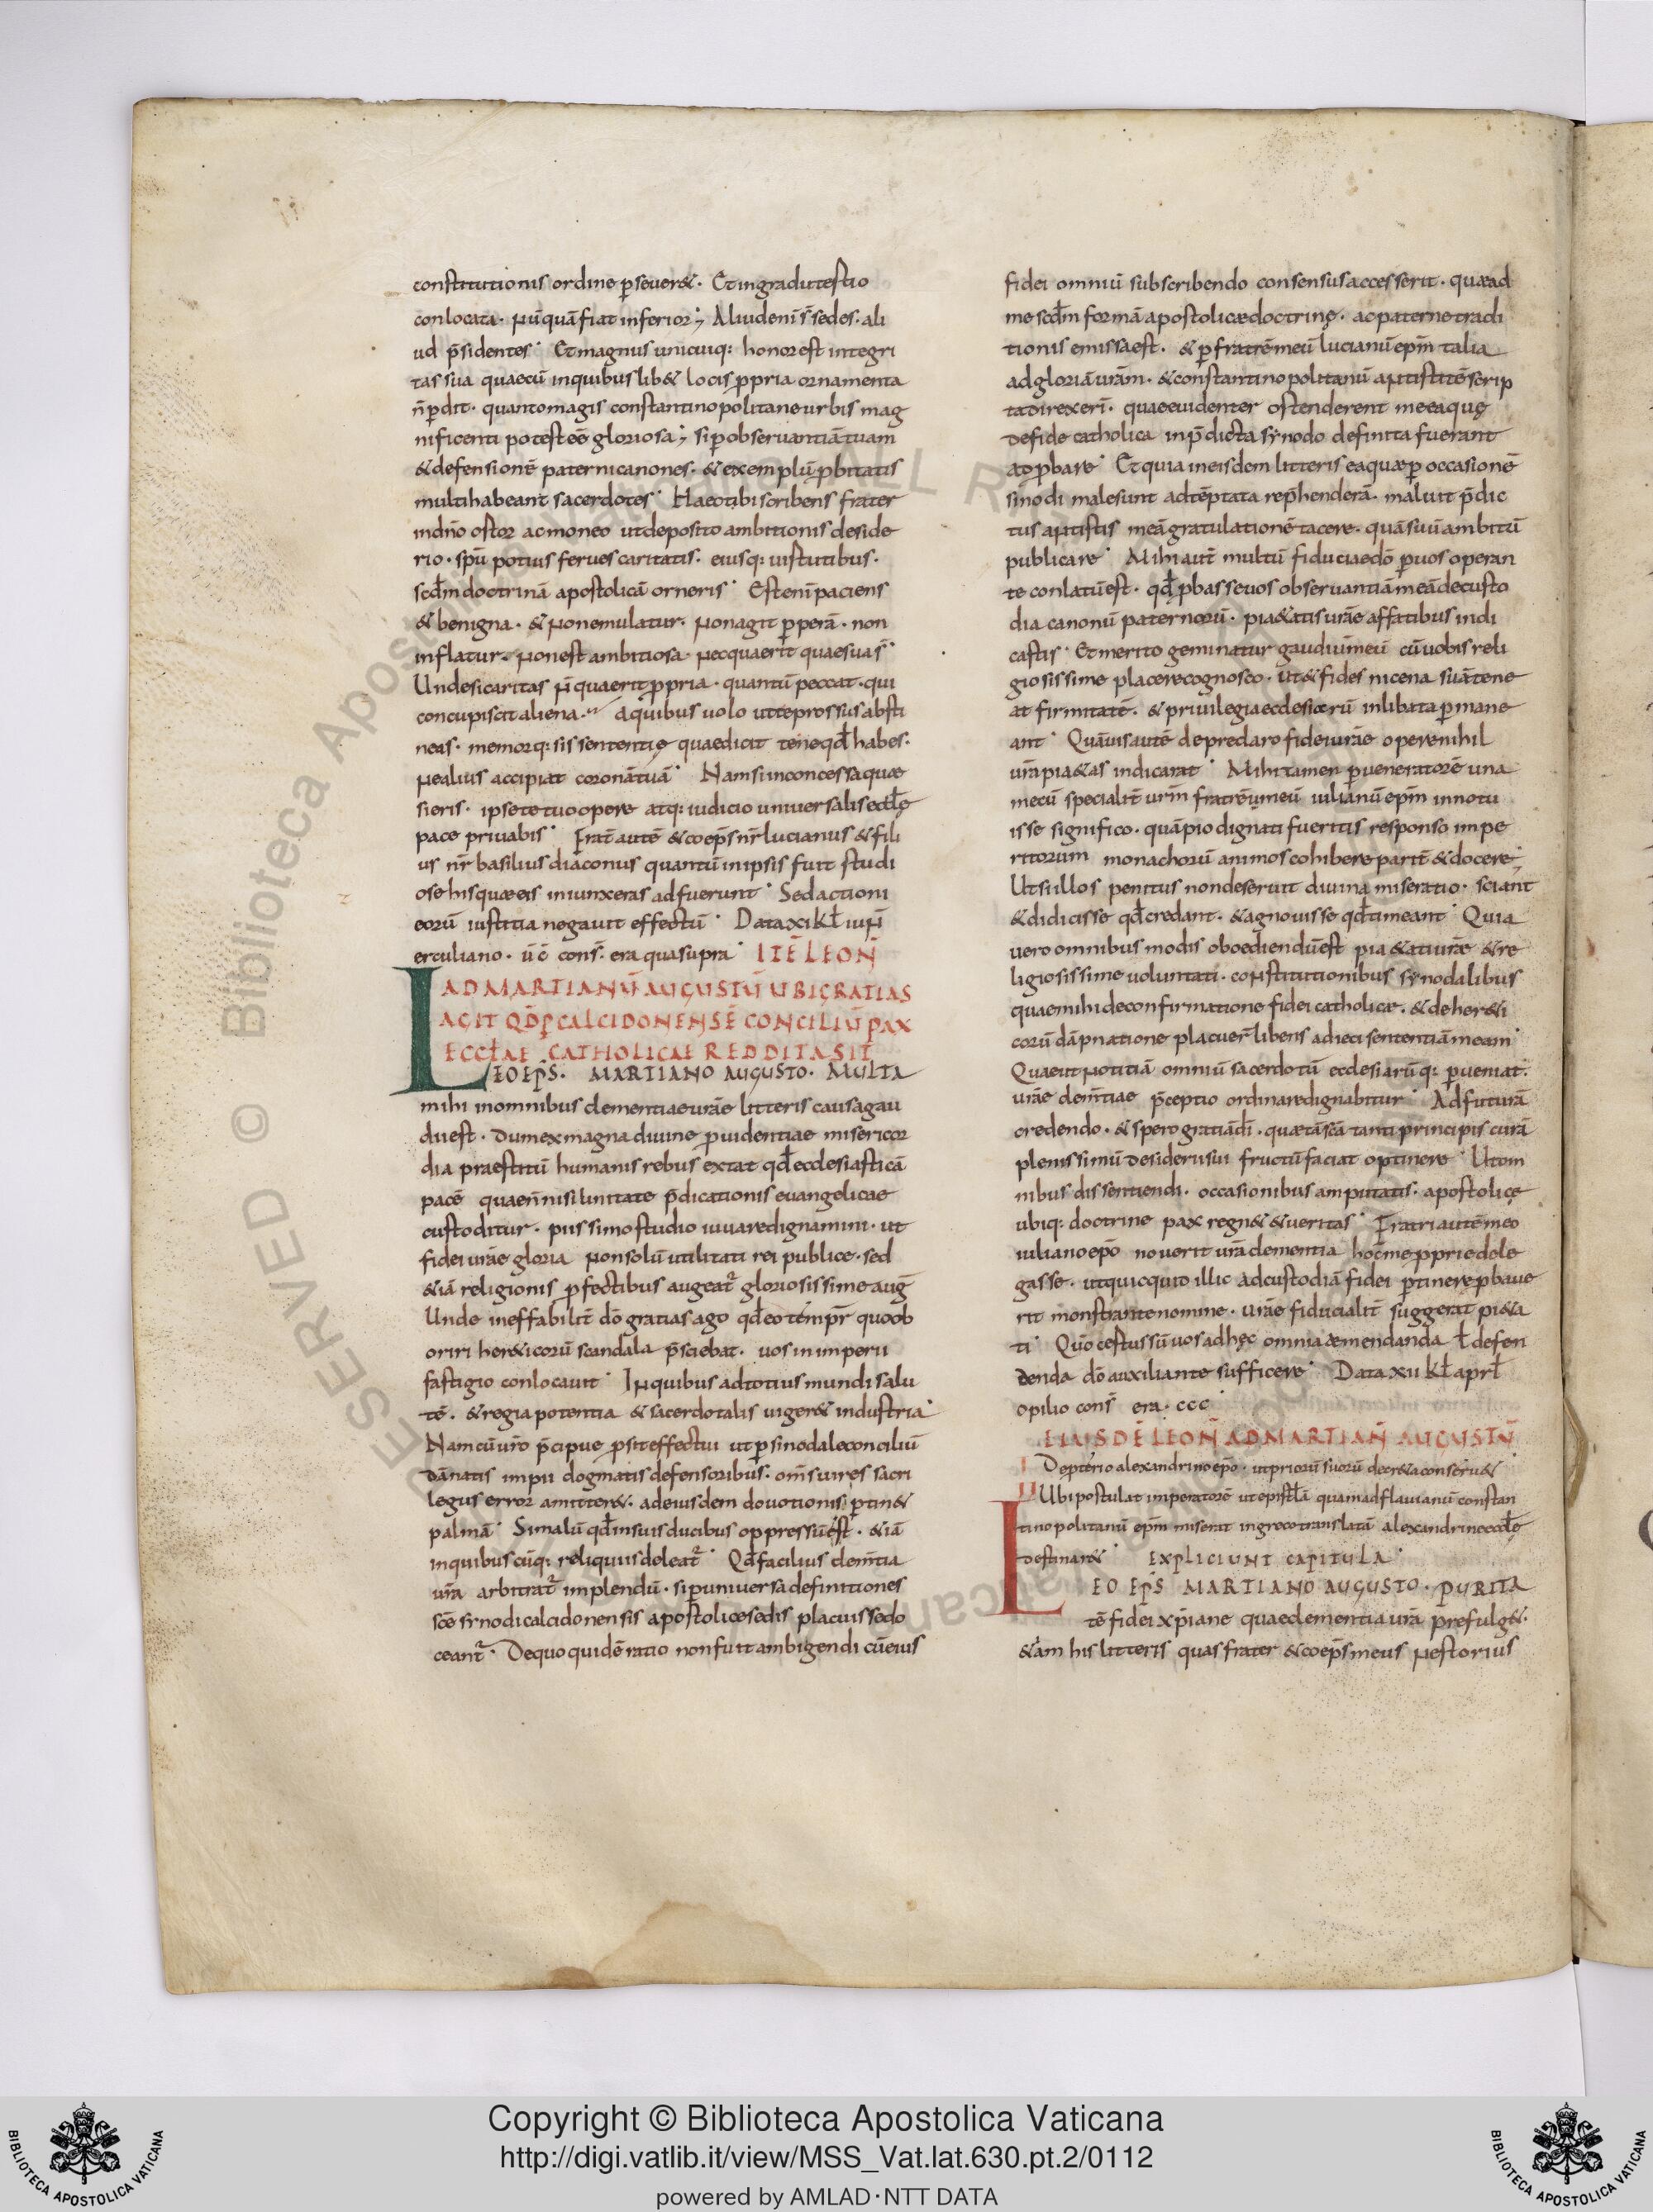 constitutionis ordine p̄seuer&. Et ingradu testio
conlocata. nūquā fiat inferior; Aliud eni s̄ sedes. ali
ud p̄sidentes. Et magnus unicuiq: honor est integri
tas sua quae cū inquibus lib& locis ppria ornamenta
n̄ pdit. quanto magis constantinopolitane urbis mag
nificenti potest eē gloriosa; si p obseruantiā tuam
& defensionē paterni canones. & exemplū pbitatis
multi habeant sacerdotes. Haec tibi scribens frater
in dn̄o ostor ac moneo ut deposito ambitionis deside
rio. sp̄u potius ferues caritatis. eiusq: uistutibus.
scd̄m doctrinā apostolicā orneris. Est eni paciens
& benigna. & non emulatur. non agit pperā. non
inflatur. non est ambitiosa. nec quaerit quae sua s̄.
Unde si caritas n̄ quaerit ppria. quantū peccat. qui
concupiscit aliena. A quibus uolo ut te prossus absti
neas. memorq: sis sententię quae dicit tene qđ habes.
ne alius accipiat coronā tuā. Nam si inconcessa quae
sieris. ipse te tuo opere atq: iudicio uniuersalis eccłę
pace priuabis. Frat̄ autē & coep̄s nr̄ lucianus & fili
us nr̄ basilius diaconus quantū in ipsis fuit studi
ose his quae eis iniunxeras adfuerunt. Sed actioni
eorū iustitia negauit effectū. Data xi kł iun̄
erculiano. ū c̄ cons̄. era qua supra. ITĒ LEON̄
AD MARTIANŪ AUGUSTŪ UBI GRATIAS
AGIT QD̄ P CALCIDONENSĒ CONCILIŪ PAX
ECCŁAE CATHOLICAE REDDITA SIT
LEO EP̄S. MARTIANO AUGUSTO. MULTA
mihi in omnibus clementiae urāe litteris causa gau
dii est. dum ex magna diuine puidentiae misericor
dia praestitū humanis rebus extat qđ ecclesiasticā
pacē quae n̄ nisi unitate p̄dicationis euangelicae
custoditur. piissimo studio iuuare dignamini. ut
fidei urāe gloria non solū utilitati rei publice. sed
&iā religionis pfectibus augeat̄ gloriosissime aug̅
Unde ineffabilit̄ dō gratias ago qđ eo tempr̄ quo ob
oriri her&icorū scandala p̄sciebat. uos in imperii
fastigio conlocauit. In quibus ad totius mundi salu
tē. & regia potentia & sacerdotalis uiger& industria.
Nam cū urō p̄cipue psit effectui ut p sinodale conciliū
dānatis impii dogmatis defensoribus. om̄s uires sacri
legus error amitter&. ad eiusdem douotionis ptin&
palmā. Simalū qđ in suis ducibus oppressū est. &iā
in quibuscūq: reliquiis deleat̄. Qđ facilius clem̄tia
urā arbitrat̄ implendū. si p uniuersa definitiones
scē sinodi calcidonensis apostolice sedis placuisse do
ceant̄. De quo quidē ratio non fuit ambigendi cū eius
fidei omniū subscribendo consensus accesserit. quae ad
me scd̄m formā apostolicae doctrinę. ac paterne tradi
tionis emissa est. & p fratrē meū lucianū ep̄m talia
ad gloriā urām. & constantinopolitanū antistitē scrip
ta direxeri. quae euidenter ostenderent me ea quę
de fide catholica in p̄dicta synodo definita fuerant
adpbare. Et quia in eisdem litteris ea quae p occasionē
sinodi male sunt adtēptata rep̄henderā. maluit p̄dic
tus antistis meā gratulationē tacere. quā suū ambitū
publicare. Mihi aut̄ multū fiduciae dō p uos operan
te conlatū est. qđ pbasse uos obseruantiā meā de custo
dia canonū paternorū. pi&atis urāe affatibus indi
castis. Et merito geminatur gaudiū meū cū uobis reli
giosissime placere cognosco. ut & fides nicena suā tene
at firmitatē. & priuilegia ecclesiarū inlibata pmane
ant. Quāuis autē de preclaro fidei urāe opere nihil
urā pi&as indicarat. Mihi tamen p ueneratorē una
mecū specialit̄ urm̄ fratrē meū iulianū ep̄m innotu
isse significo. quā pio dignati fueritis responso impe
ritorum monachorū animos cohibere parit̄ & docere;
Ut si illos penitus non deseruit diuina miseratio. sciant
& didicisse qđ credant. & agnouisse qđ timeant. Quia
uero omnibus modis oboediendū est pi&ati urāe & re
ligiosissime uoluntati. constitutionibus synodalibus
quae mihi de confirmatione fidei catholicae. & de her&i
corū dāpnatione placuer̄ libens adieci sententiā meam.
Quae ut notitiā omniū sacerdotū ecclesiarūq: pueniat.
urāe clem̄tiae p̄ceptio ordinare dignabitur. Ad futurā
credendo. & spero gratiā dī. quae tā scā tanti principis curā
plenissimū desiderii sui fructū faciat optinere. Ut om
nibus dissentiendi. occasionibus amputatis. apostolicę
ubiq: doctrine pax regn& & ueritas. Fratri autē meo
iuliano ep̄o nouerit urā clementia hoc me pprie dele
gasse. ut quicquid illic ad custodiā fidei ptinere pbaue
rit monstrante nomine. urāe fiducialit̄ suggerat pi&a
ti. Quo certus sū uos ad hęc omnia aemendanda ł defen
denda dō auxiliante sufficere. Data xii kł aprł
opilio cons̄ era. ccc
EIUSDĒ LEON̄ AD MARTIAN̄ AUGUSTŪ
I De pterio alexandrino ep̄o. ut priorū suorū decr&a conseru&
II Ubi postulat imperatorē ut epistłā quam ad flauianū constan
tinopolitanū ep̄m miserat in greco translatā alexandrine eccłę
destinar&. EXPLICIUNT CAPITULA.
LEO EP̄S MARTIANO AUGUSTO. PURITA
tē fidei xp̄iane quae clementia urā prefulg&.
&iam his litteris quas frater & coep̄s meus nestorius
Copyright © Biblioteca Apostolica Vaticana
http://digi.vatlib.it/view/MSS_Vat.lat.630.pt.2/0112
powered by AMLAD·NTT DATA